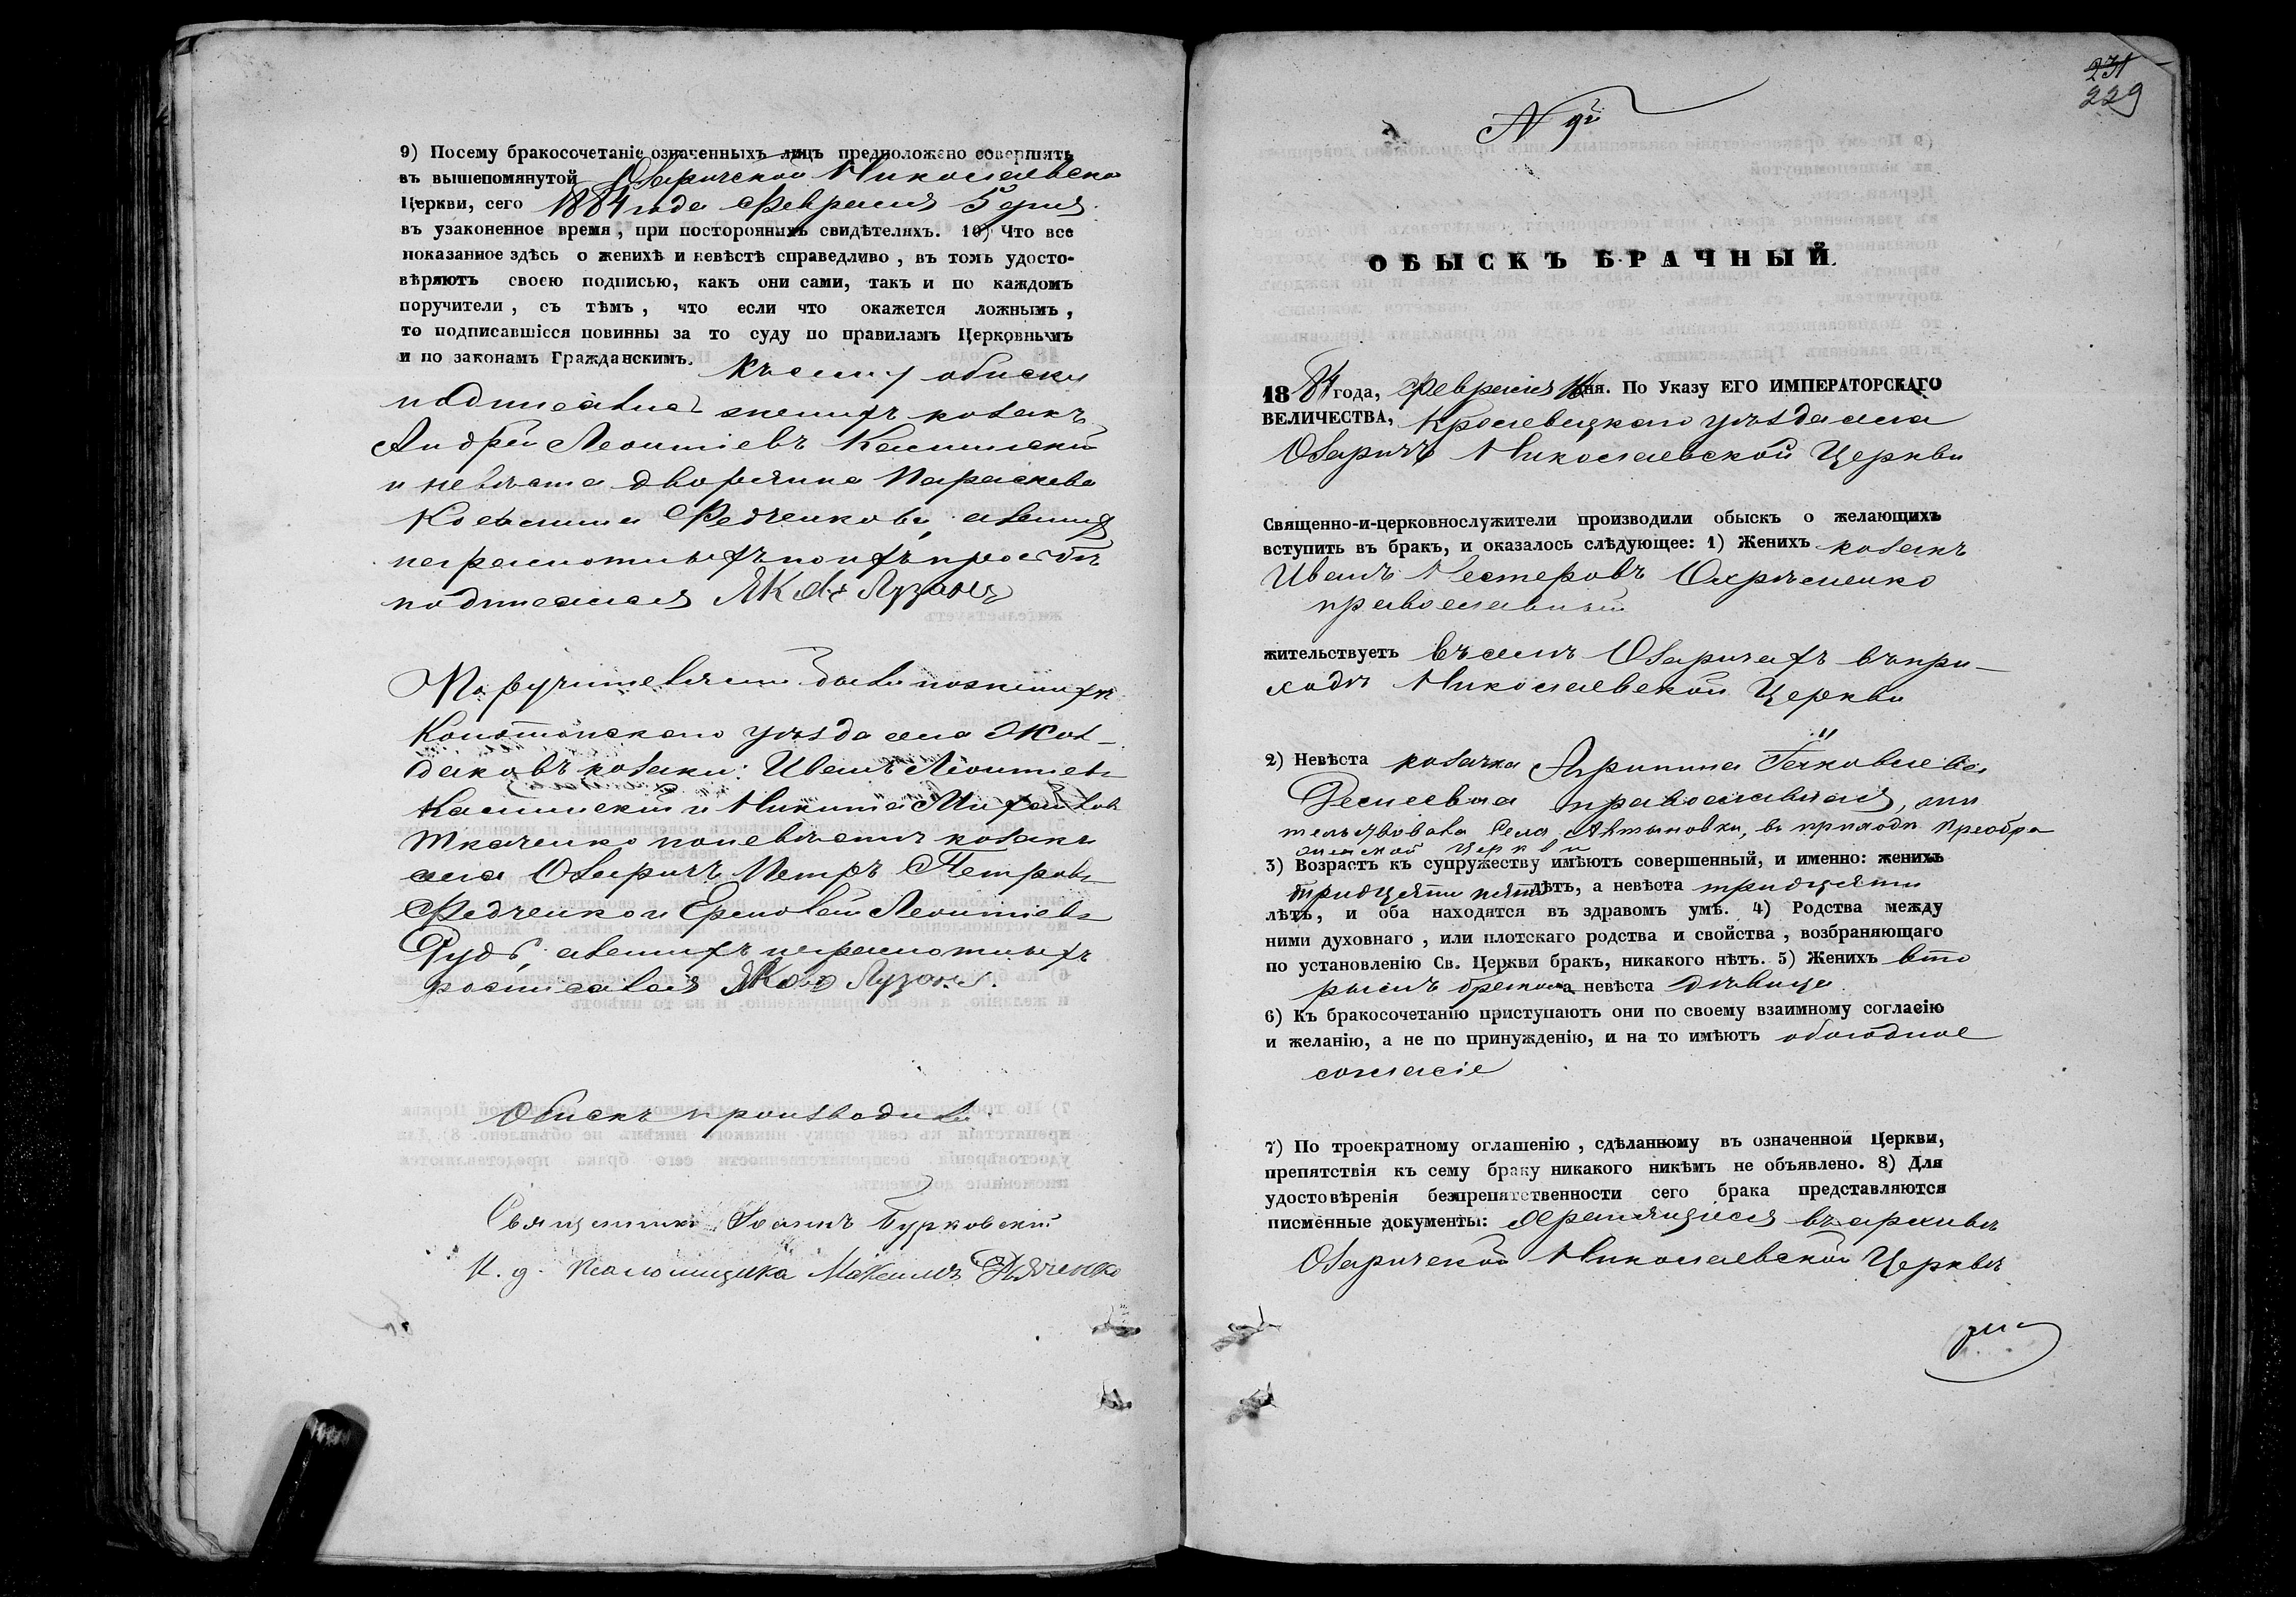 9) Посему бракосочетаніе означенныхъ лицъ предположено совершить
въ вышепомянутой Озаричской Николаевской
Церкви, сего 1884 года Февраля 5 дня
въ узаконенное время, при постороннихъ свидѣтеляхъ. 10) Что все
показанное здѣсь о женихѣ и невѣстѣ справедливо, въ томъ удосто-
вѣряютъ своею подписью, какъ они сами, такъ и по каждомъ
поручители, съ тѣмъ, что если что окажется ложнымъ,
то подписавшіеся повинны за то суду по правиламъ Церковнымъ
и по законамъ Гражданскимъ. Къ сему обыску
подписались женихъ козакъ
Андрей Леонтіевъ
и невѣста дворянка Параскева
Федченкова, а вмѣсто
неграмотныхъ по ихъ просьбѣ
подписался Яковъ Лузанъ
Поручителями были по женихѣ
Конотопскаго уѣзда села Жол-
даковъ козаки: Иванъ Леонтіевъ
и Никита Михайловъ
Ткаченко по невѣстѣ козаки
села Озаричъ Петръ Петровъ
Федченко и Ермолай Леонтіевъ
Рудь, а вмѣсто неграмотныхъ
росписался Яковъ Лузанъ.
Обыскъ производили
Священникъ Іоаннъ Бурковскій
И. д. псаломщика Максимъ Дьяченко
231
229
N 9й
ОБЫСКЪ БРАЧНЫЙ.
1884 года, Февраля дня. По Указу ЕГО ИМПЕРАТОРСКАГО
ВЕЛИЧЕСТВА, Кролевецкаго уѣзда села
Озаричъ Николаевской Церкви
Священно-и-церковнослужители производили обыскъ о желающихъ
вступить въ бракъ, и оказалось слѣдующее: 1) Женихъ козакъ
Иванъ Нестеровъ Охрѣменко
православный
жительствуетъ въ селѣ Озаричахъ въ при-
ходѣ Николаевской Церкви
2) Невѣста козачка Агрипина Яковлева
православная, жи
тельствовала села Алтыновки, въ приходѣ Преобра
женской Церкви
3) Возрастъ къ супружеству имѣютъ совершенный, и именно: женихъ
тридцяти пяти лѣтъ, а невѣста тридцяти
лѣтъ, и оба находятся въ здравомъ умѣ. 4) Родства между
ними духовнаго, или плотскаго родства и свойства, возбраняющаго
по установленію Св. Церкви бракъ, никакого нѣтъ. 5) Женихъ вто
рымъ бракомъ а невѣста дѣвица.
6) Къ бракосочетанію приступаютъ они по своему взаимному согласію
и желанію, а не по принужденію, и на то имѣютъ обоюдное
согласіе
7) По троекратному оглашенію, сдѣланному въ означенной Церкви,
препятствія къ сему браку никакого никѣмъ не объявлено. 8) Для
удостовѣренія безпрепятственности сего брака представляются
писменные документы: хранящіеся въ архивѣ
Озарической Николаевской Церквѣ